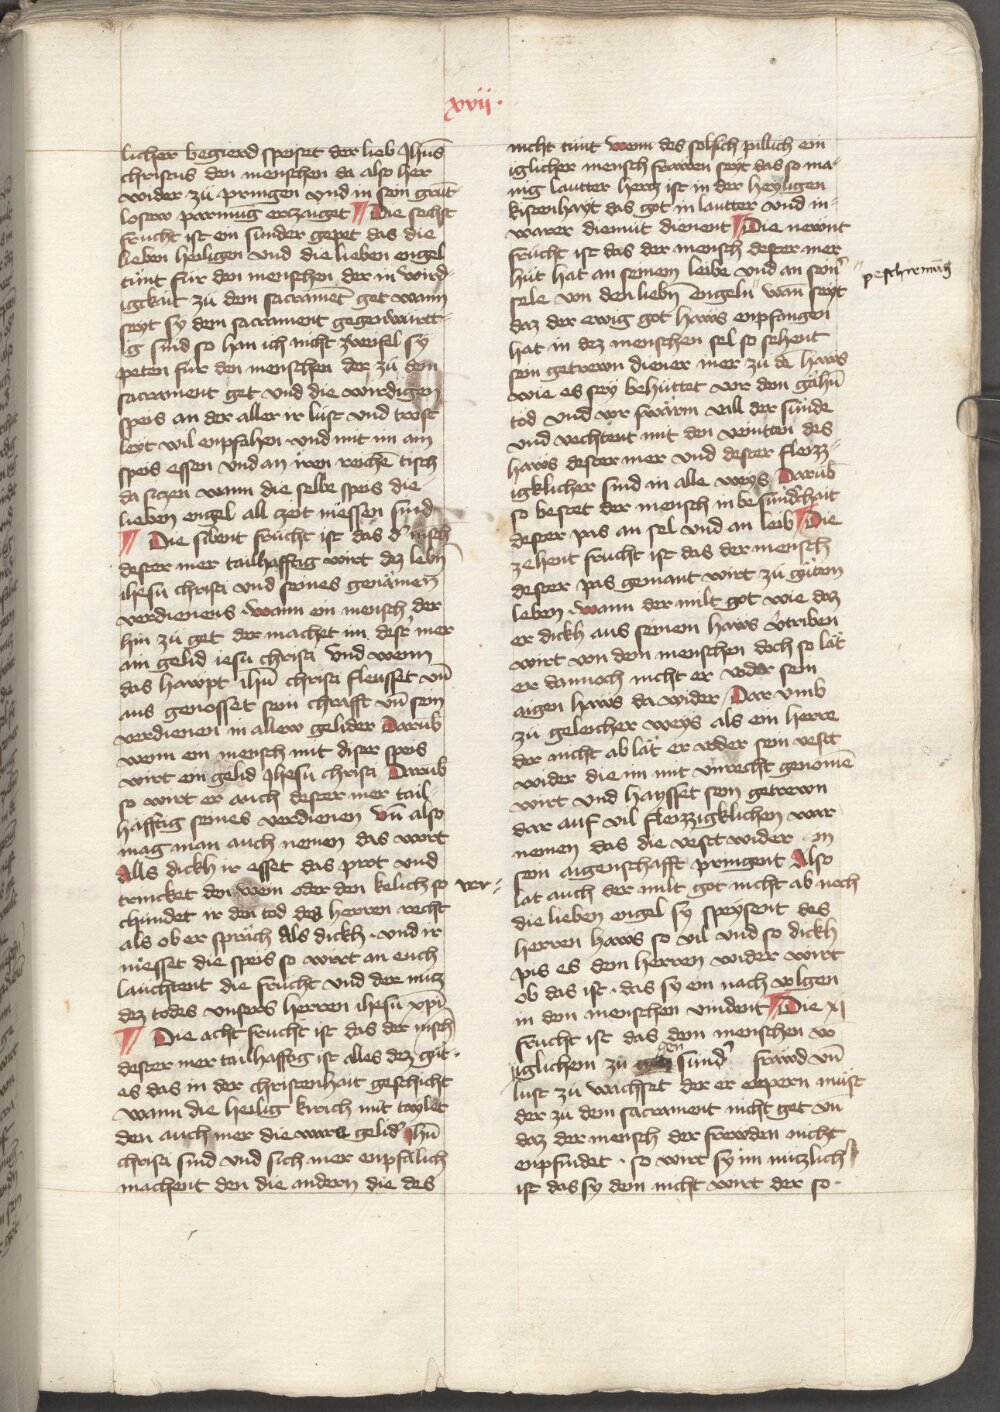 xvii·
licher begierd speiset der lieb Jhūs
christus den menschen da also her
wider zů pringen vnd in sein grūt-
losew parmūg erczaiget ¶ Die sechst
frucht ist ein sunder gepet das die
lieben heiligen vnd die lieben engel
tunt für den menschen der in wird-
igkait zů dem sacramēt get wann
seyt sy dem sacrament gegenwürtt-
ig sind so han ich nicht zweifel sy
peten für den menschen der zů dem
sacrament get vnd die wirdigen
speis an der aller ir lust vnd trost
leyt wil enpfahen vnd mit im am
speis essen vnd an iren reichē tisch
da siczen wann die selbe speis die
lieben engel all zeit niessen sind
¶ Die sibent frucht ist das d' mēsch
dester mer tailhafftig wirt dez lebn̄
ihesū christi vnd seines genämen
verdienens · wann ein mensch der
hin zů get der machet im dest' mer
ain gelid iesu christi vnd wenn
das hawpt ihū christi fleusset vn̄
aus genosset sein chrafft vn̄ sein
verdienen in allew gelider Darūb
wenn ein mensch mit diser speis
wirt ein gelid Jhesu christi Darūb
so wirt er auch dester mer tail-
hafftig seines verdienen vn̄ also
mag man auch nemen das wort
Alls dickh ir esset das prot vnd
trincket den wein oder den kelich so ver-
chündet ir den tod des herren recht
als ob er spräch Als dickh · vnd ir
niesset die speis so wirt an euch
lauchtent die frucht vnd der nucz
dez todes vnsers herren ihesu xpī
¶ Die acht frucht ist das der mēsch
dester mer tailhafftig ist alles dez gůt-
es das in der christenhait geschicht
wann die heilig kirich mit taylet
den auch mer die ware gelid' Jhū
christi sind vnd sich mer enpfälich
machent den die andern die des
nicht tunt wenn des solsich pillich ein
iglicher mensch frawen seyt das so ma-
nig lautter hercz ist in der heyligen
kistenhayt das got in lautter vnd in-
warer diemut dienent ¶ Die newnt
frucht ist das der mensch dester mer
hut hat an seinem leibe vnd an sein'
peschirmāg
sele von den liebn̄ engeln wan seyt
daz der ewig got haws enpfangen
hat in dez menschen sel so sehent
sein getrewn diener mer zů dē haws
wie es sey behüttet vor dem gähn̄
tod vnd vor swärm vall der sunde
vnd vechtent mit den veintten des
haws dester mer vnd dester fleizz-
igklicher sind in alle weys Darūb
so bestet der mensch in besund'hait
dester pas an sel vnd an leib ¶ Die
zehent frucht ist das der mensch
dester pas gemant wirt zů gůtem
leben · wann der milt got wie daz
er dickh aus seinem haws v'triben
wirt von dem menschen doch so lät
er dannoch nicht er voder sein
aigen haws da wider / Dar vmb
zu geleicher weys als ein herre
der nicht ab lät er voder sein vest
wider die im mit vnrecht genomē
wirt vnd haysset sein getrewn
dar auf vil fleizzigklichen war
nemen das die vest wider in
sein aigenschafft pringent Also
lat auch der milt got nicht ab noch
die lieben engel sy speysent des
herren haws so vil vnd so dickh
pis es dem herren wider wirt
ob das ist · das sy ein nach volgen
in dem menschen vindent ¶ Die xj
frucht ist das dem menschen vor
iglichem zů sünd' fräwd vn̄
lust zů wachset der er enpern müst
der zů dem sacrament nicht get vn̄
daz der mensch der frawden nicht
enpfindet · so wirt sy im nuczlich
ist das sy dem nicht wirt der so-